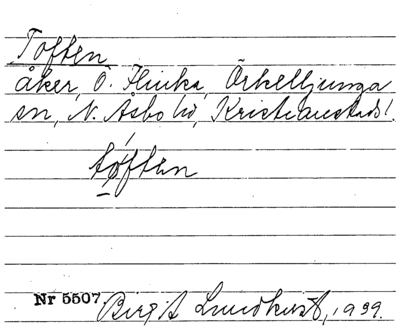 Toften
åker, Ö. Flinka, Örkelljunga
sn, N. Åsbo hd, Kristianstads l.
tóften
Nr 5507 Birgit Lundkvist, 1939.